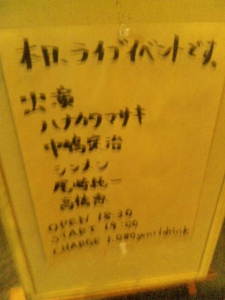 本日、ライブイベントです。
出演
ハナカタマサキ
中嶋定治
シンメン
尾崎純一
高橋
OPEN 18:30
START 19:00
CHARGE 1,000yen+1drink